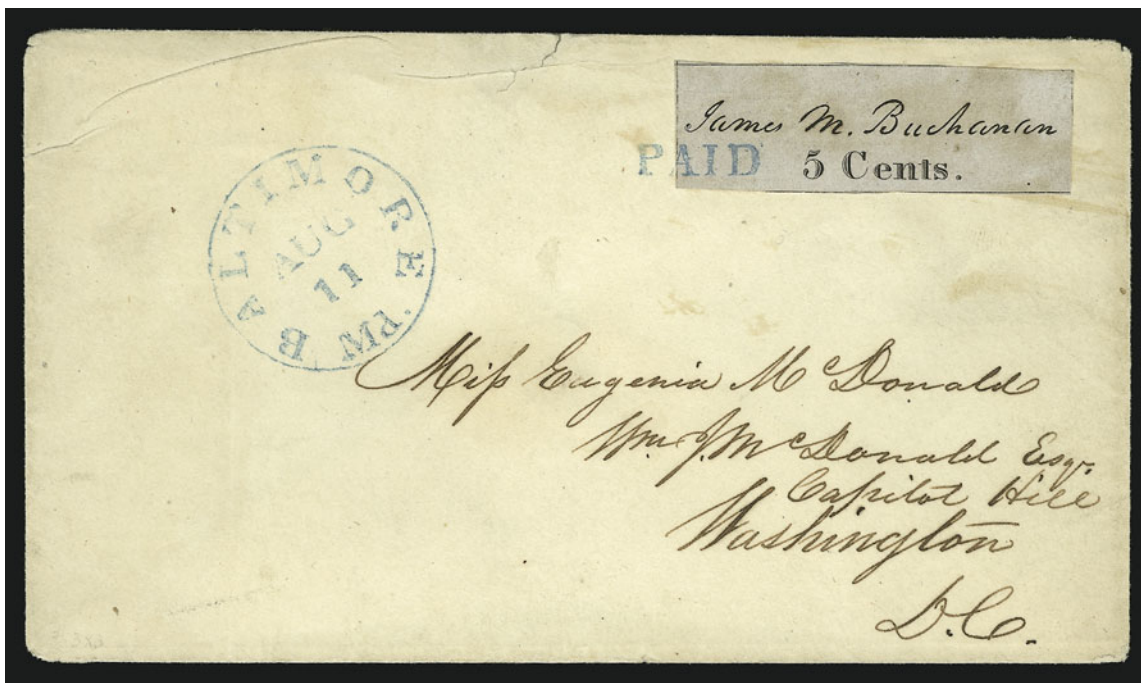 James M. Buchanan
PAID 5 Cents.
BALTIMORE Md.
AUG
11
Miss Eugenia McDonald
Wm J. McDonald Esqr.
Capitol Hill
Washington
D.C.